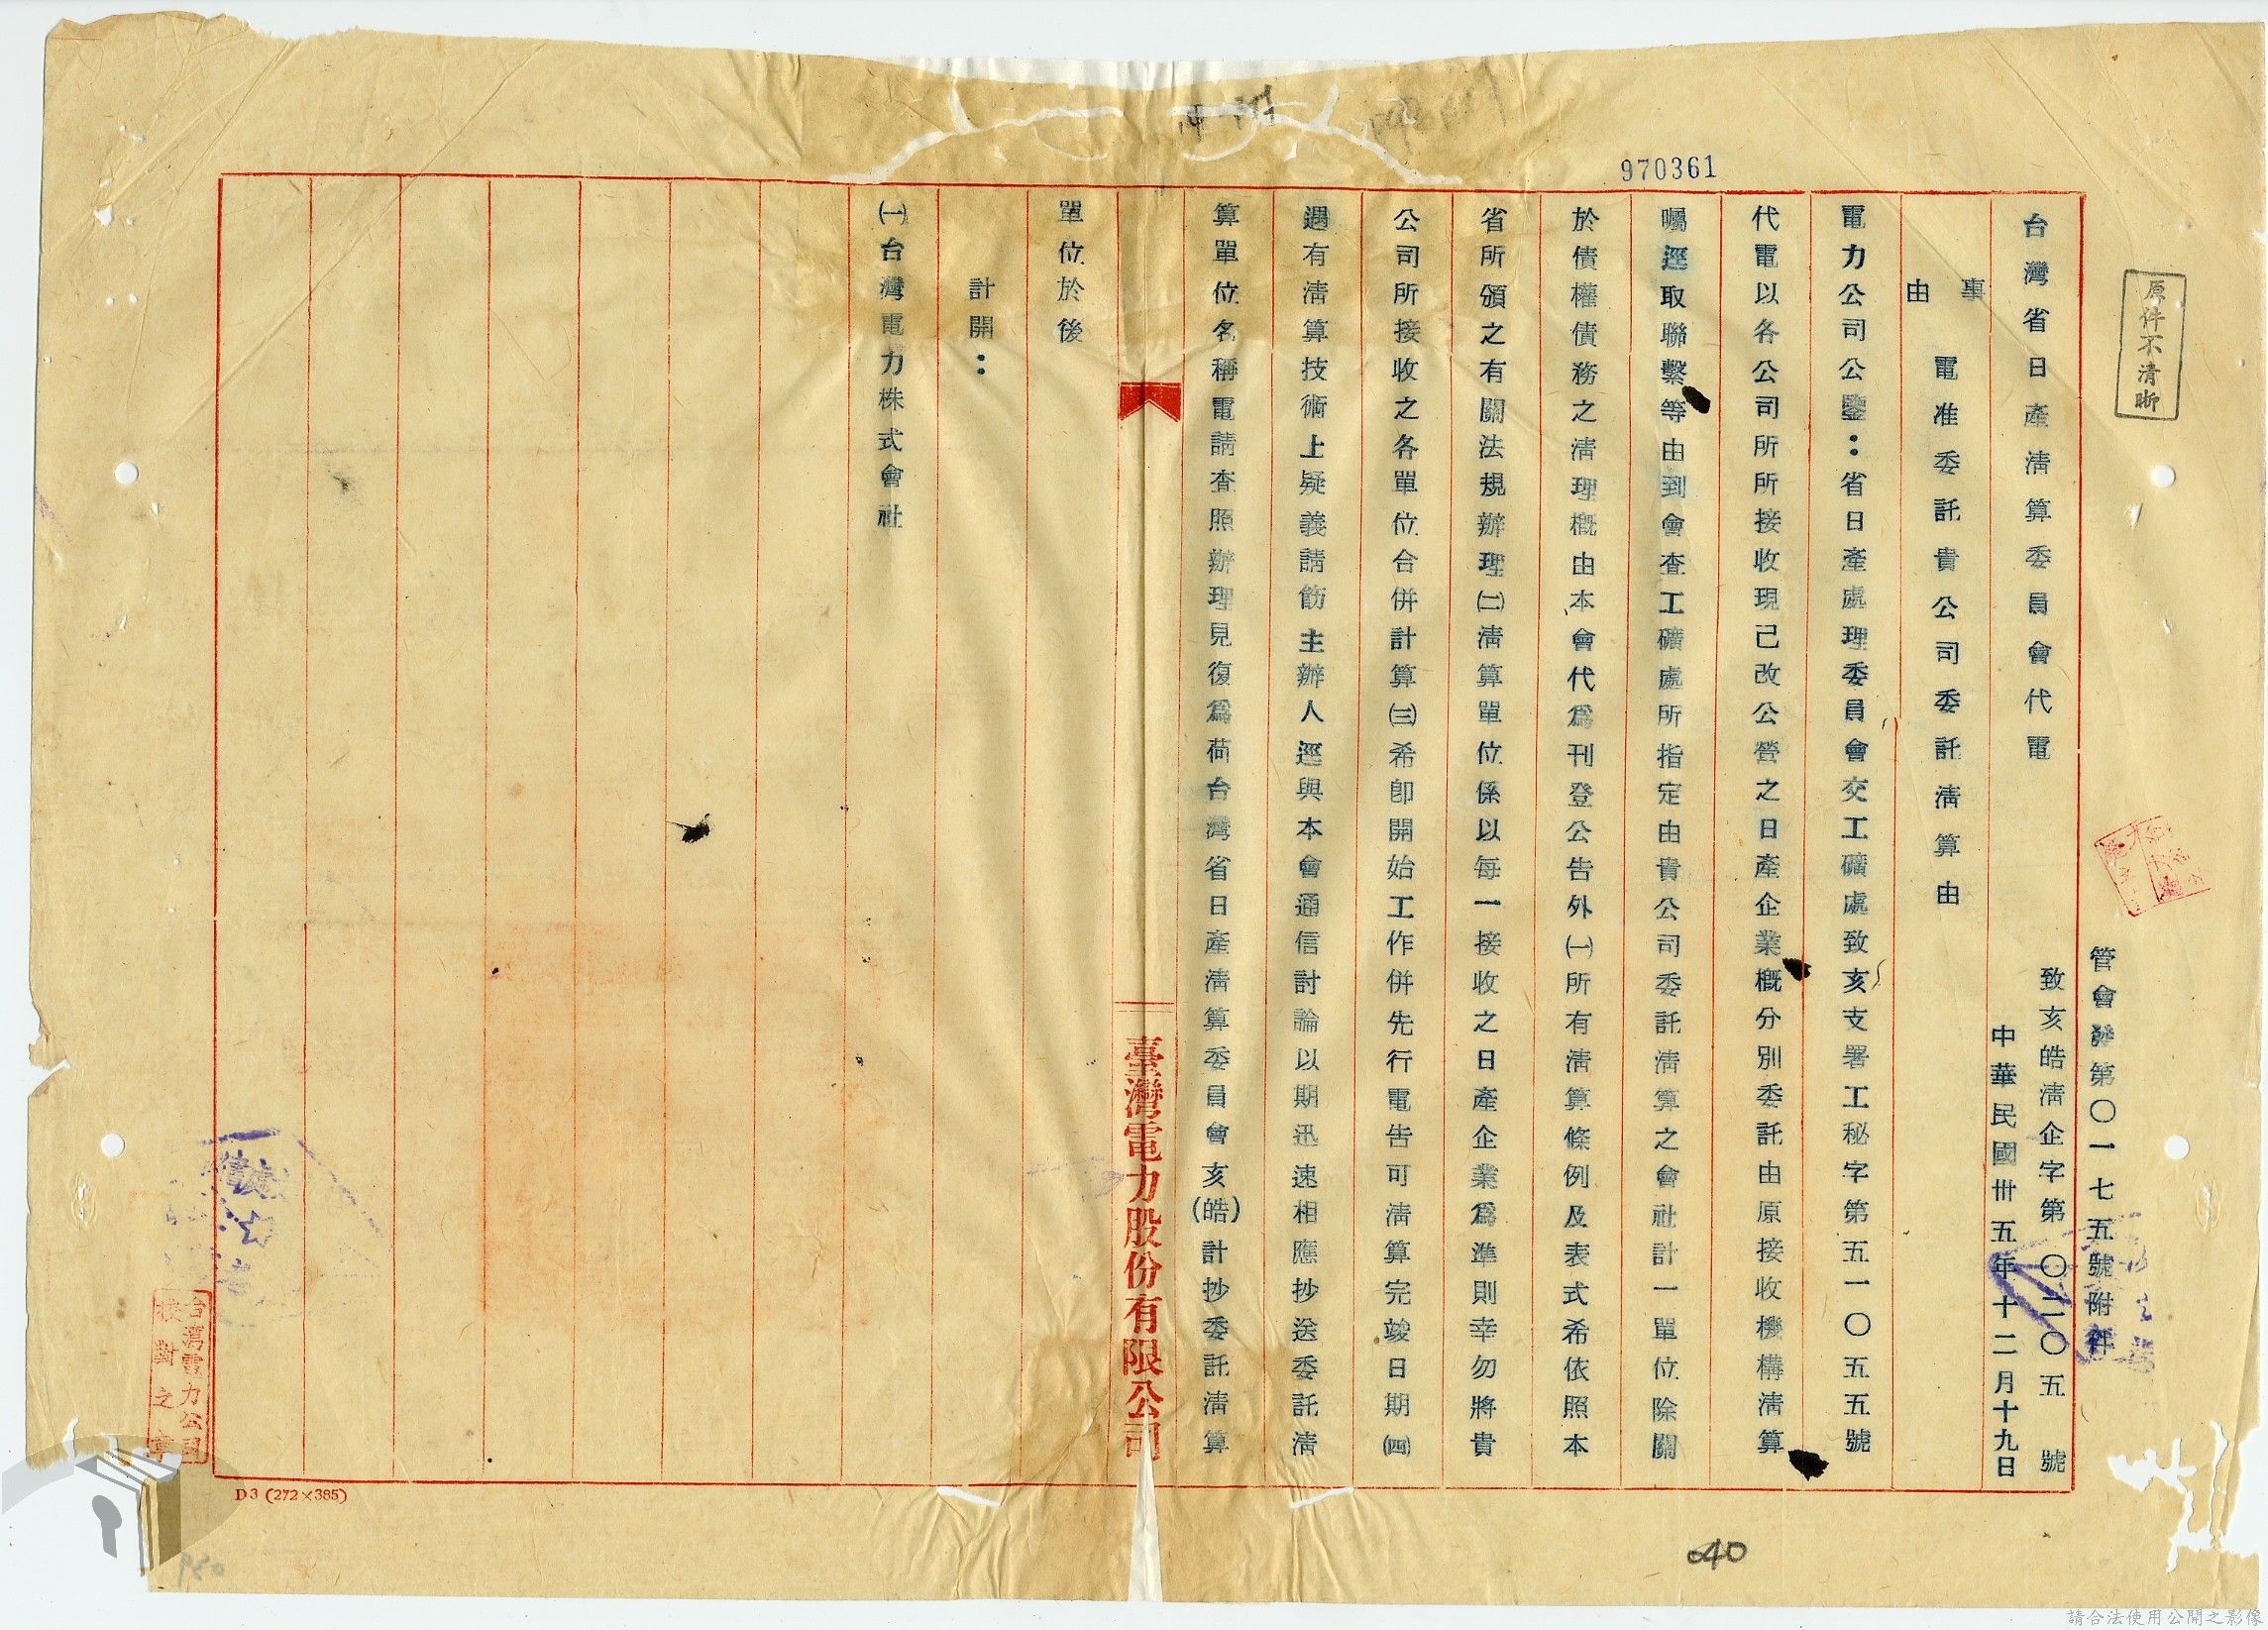 970361
原件不清晰
管會發第〇一七五號附件
台灣省日產清算委員會代電
致亥皓清企字第〇二〇五號
中華民國卅五年十二月十九日
事由
電准委託貴公司委託清算由
電力公司公鑒：省日產處理委員會交工礦處致亥支署工秘字第五一〇五五號
代電以各公司所所接收現已改公營之日產企業概分別委託由原接收機構清算
囑逕取聯繫等由到會查工礦處所指定由貴公司委託清算之會社計一單位除關
於債權債務之清理概由本會代為刊登公告外㈠所有清算條例及表式希依照本
省所頒之有關法規辦理㈡清算單位係以每一接收之日產企業為準則幸勿將貴
公司所接收之各單位合併計算㈢希即開始工作併先行電告可清算完竣日期㈣
遇有清算技術上疑義請飭主辦人逕與本會通信討論以期迅速相應抄送委託清
算單位名稱電請查照辦理見復為荷台灣省日產清算委員會亥(皓)計抄委託清算
臺灣電力股份有限公司
單位於後
計開：
㈠台灣電力株式會社
台灣電力公司
校對之章
D3 (272×385)
040
請合法使用公開之影像